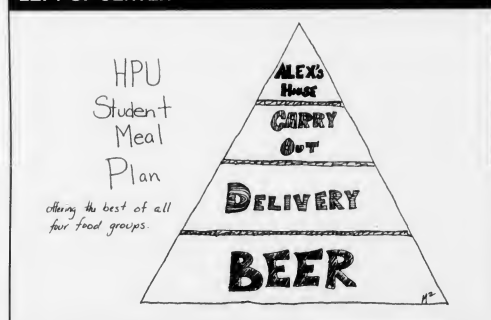 HPU
Student
Meal
Plan
offering the best of all
four food groups.
ALEX's
House
CARRY
OUT
DELIVERY
BEER
M²